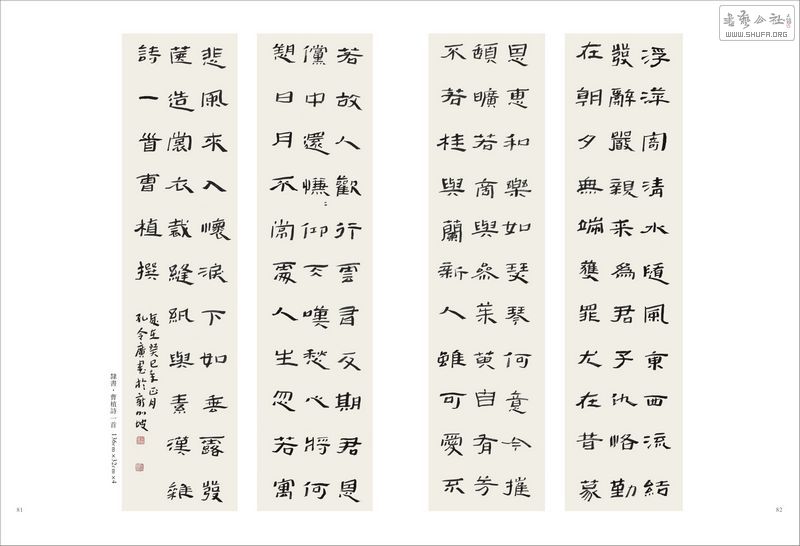 書藝公社
WWW.SHUFA.ORG
浮萍寄清水隨風東西流結
發辭嚴親来為君子仇恪勤
在朝夕無端獲罪尤在昔蒙
恩惠和樂如瑟琴何意今摧
頹曠若商與參茱萸自有芳
不若桂與蘭新人雖可愛不
若故人歡行雲有反期君恩
儻中還慊〻仰天嘆愁心將何
愬日月不常處人生忽若寓
悲風來入懷淚下如垂露發
篋造裳衣裁縫紈與素漢雜
詩一首曹植撰
歲在癸巳年正月
孔令廣書於新加坡
隸書·曹植詩一首 136cm×32cm×4
81
82